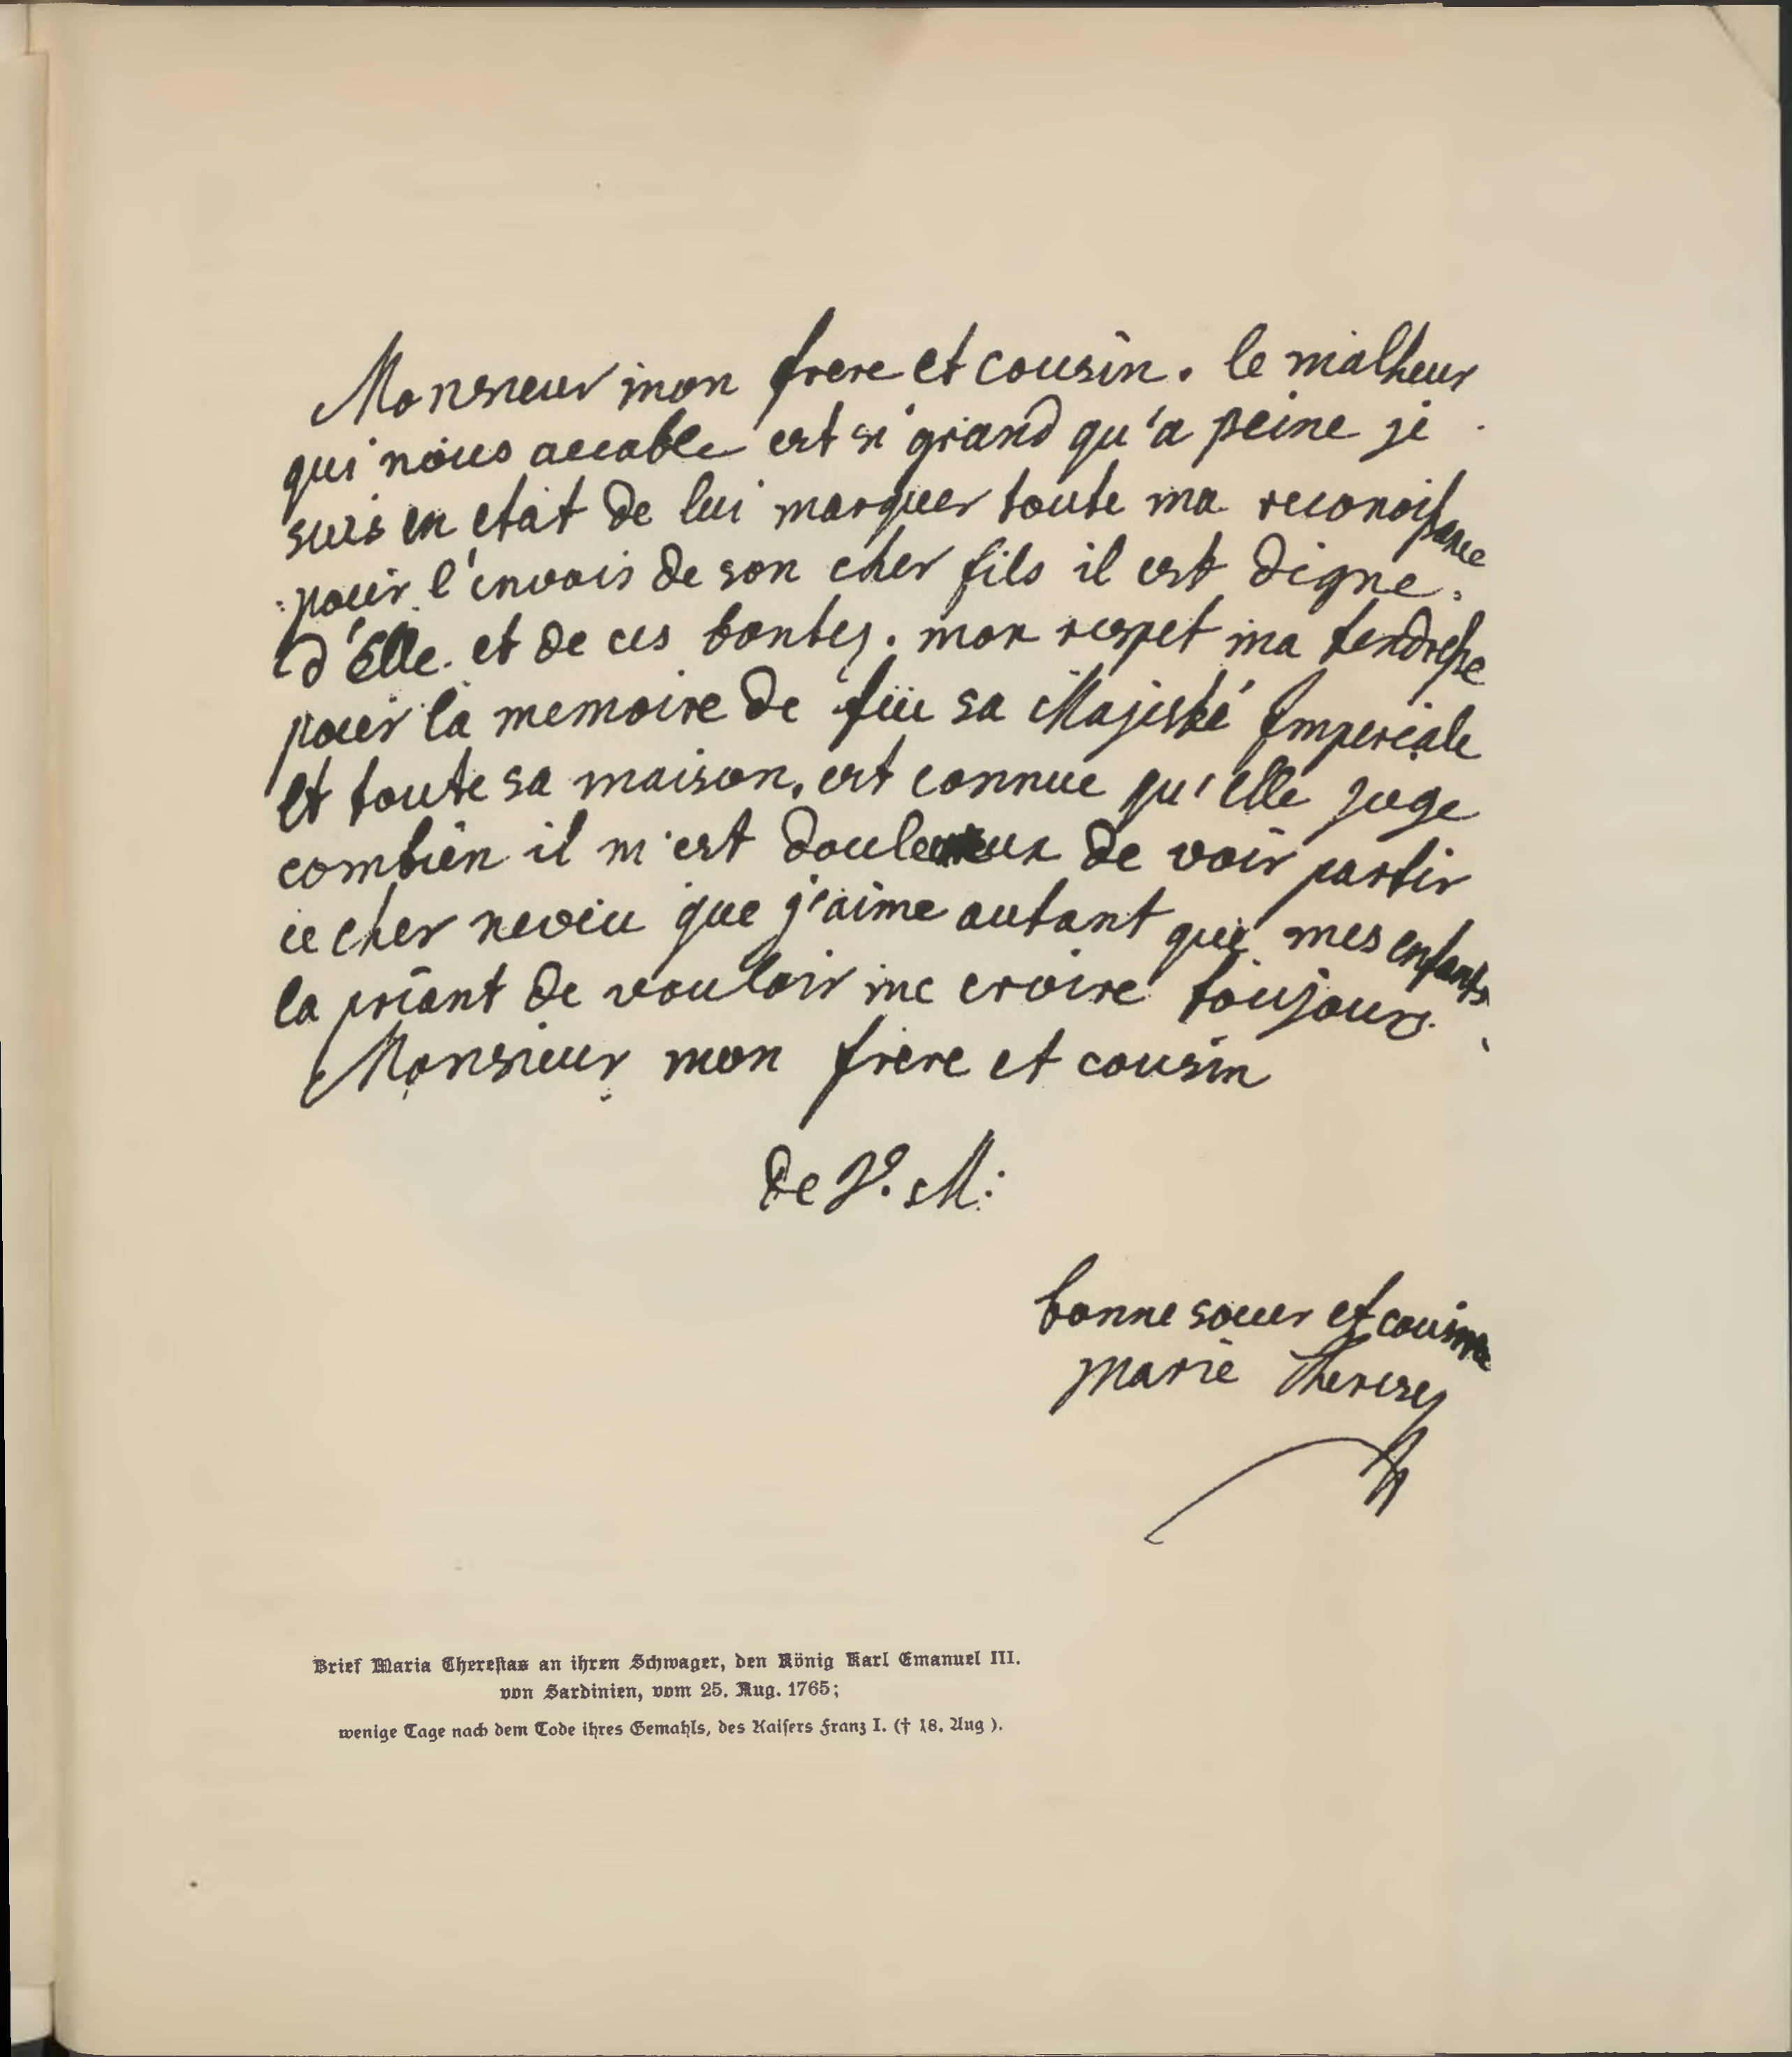 Monsieur mon frere et cousin. le malheur
qui nous accable est si grand qu'a peine je
suis en etat de lui marquer toute ma reconoissance
pour l'envois de son cher fils il est digne.
d'Elle. et de ces bontes. mon respet ma tendresse
pour la memoire de feu sa Majesté Imperiale
et toute sa maison, est connue qu'elle juge
combien il m'est douleureux de voir partir
ce cher neveu que j'aime autant que mes enfants
la priant de vouloir me croire toujours.
Monsieur mon frere et cousin
de V. M:
bonne soeur et cousine
Marie Therese
Brief Maria Theresias an ihren Schwager, den König Karl Emanuel III.
von Sardinien, vom 25. Aug. 1765;
wenige Tage nach dem Tode ihres Gemahls, des Kaisers Franz I. († 18. Aug ).